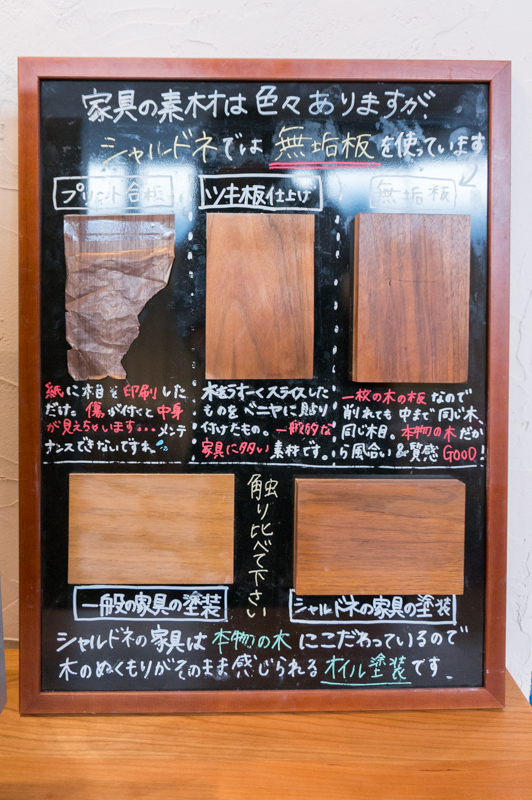 家具の素材は色々ありますが、
シャルドネでは無垢板を使っています
プリント合板
ツキ板仕上げ
無垢板
紙に木目を印刷した
だけ。傷が付くと中身
が見えちゃいます…メンテ
ナンスできないですね
木をうすーくスライスした
ものをベニヤに貼り
付けたもの。一般的な
家具に多い素材です。
一枚の木の板なので
削れても中まで同じ木、
同じ木目。本物の木だか
ら風合い&質感GOOD!
触り比べて下さい
一般の家具の塗装
シャルドネの家具の塗装
シャルドネの家具は本物の木にこだわっているので
木のぬくもりがそのまま感じられるオイル塗装です。